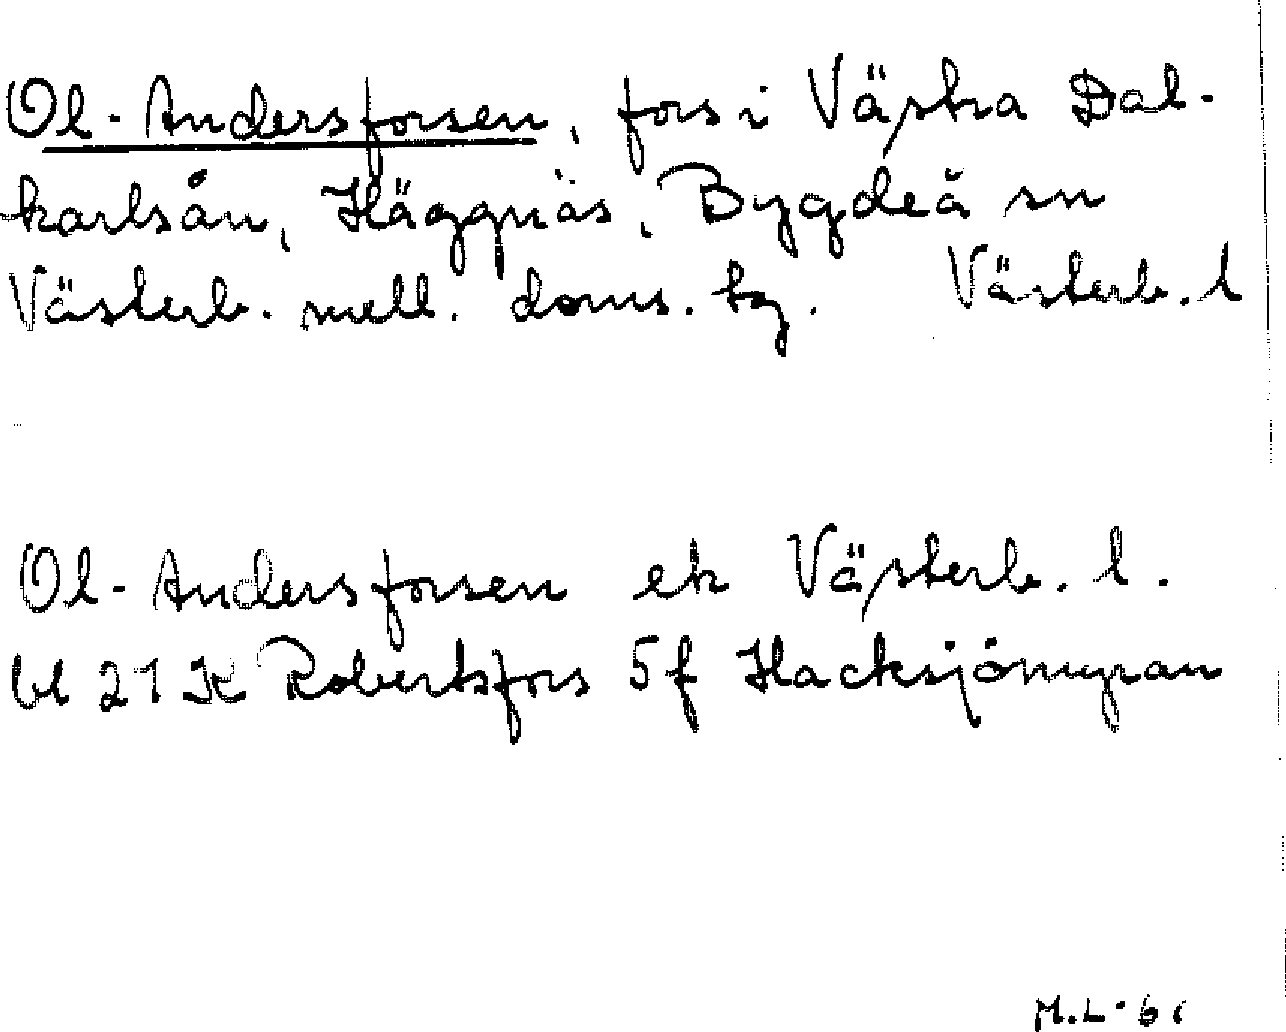 Ol-Andersforsen, fors i Västra Dal-
karlsån, Häggnäs, Bygdeå sn
Västerb. mell. doms. tg. Västerb. l
Ol-Andersforsen ek Västerb. l.
bl 21 K Robertsfors 5 f Hacksjömyran
M.L-61